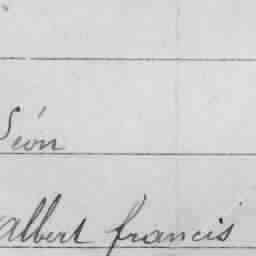 Léon
albert francis